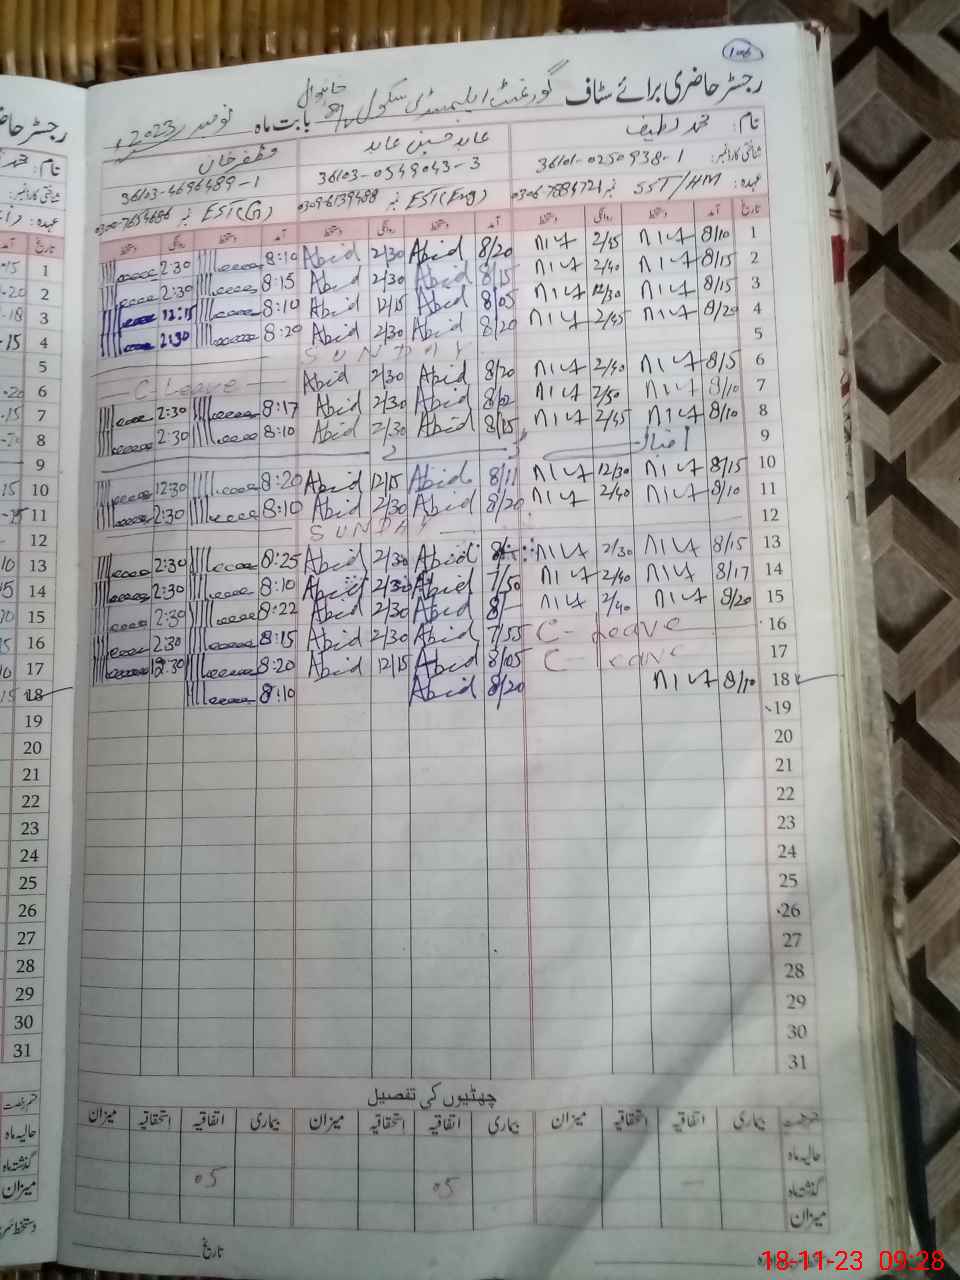 106
رجسٹر حاضری برائے سٹاف گورنمنٹ ایلیمنٹری سکول بابت ماہ نومبر 2023ء
خانیوال
نام: محمد لطیف عابد حسین عابد مظفر خان
شناختی کارڈ نمبر: 36101-0250938-1 36103-0549043-3 36103-4696489-1
عہدہ: SST/HM 0306-7884721 EST(Eng) نمبر 0309-6139488 EST(G) نمبر
تاریخ آمد دستخط روانگی دستخط آمد دستخط روانگی دستخط آمد دستخط روانگی دستخط
1 8/10 2/45 8/20 Abid 2/30 Abid 8:10 2:30
2 8/15 2/40 8/15 Abid 2/30 Abid 8:15 2:30
3 8/15 12/30 8/05 Abid 12/15 Abid 8:10 12:15
4 8/20 2/45 8/20 Abid 2/30 Abid 8:20 2:30
5 SUNDAY
6 8/5 2/40 8/20 Abid 2/30 Abid C-Leave
7 8/10 2/50 Abid 2/30 Abid 8:17 2:30
8 8/10 2/45 8/15 Abid 2/30 Abid 8:10 2:30
9 اقبال ڈے
10 8/15 12/30 8/11 Abid 12/15 Abid 8:20 12:30
11 8/10 2/40 8/20 Abid 2/30 Abid 8:10 2:30
12 SUNDAY
13 8/15 2/30 8/- Abid 2/30 Abid 8:25 2:30
14 8/17 2/40 7/50 Abid 2/30 Abid 8:10 2:30
15 8/20 2/40 8/- Abid 2/30 Abid 8:22 2:30
16 C-Leave 7/55 Abid 2/30 Abid 8:15 2:30
17 C-Leave 8/05 Abid 12/15 Abid 8:20 12:30
18 8/10 8/20 Abid 8:10
19
20
21
22
23
24
25
26
27
28
29
30
31
چھٹیوں کی تفصیل
بیماری اتفاقیہ استحقاقیہ میزان بیماری اتفاقیہ استحقاقیہ میزان بیماری اتفاقیہ استحقاقیہ میزان
حالیہ ماہ
گذشتہ ماہ — 05 05
میزان
تاریخ
18-11-23 09:28